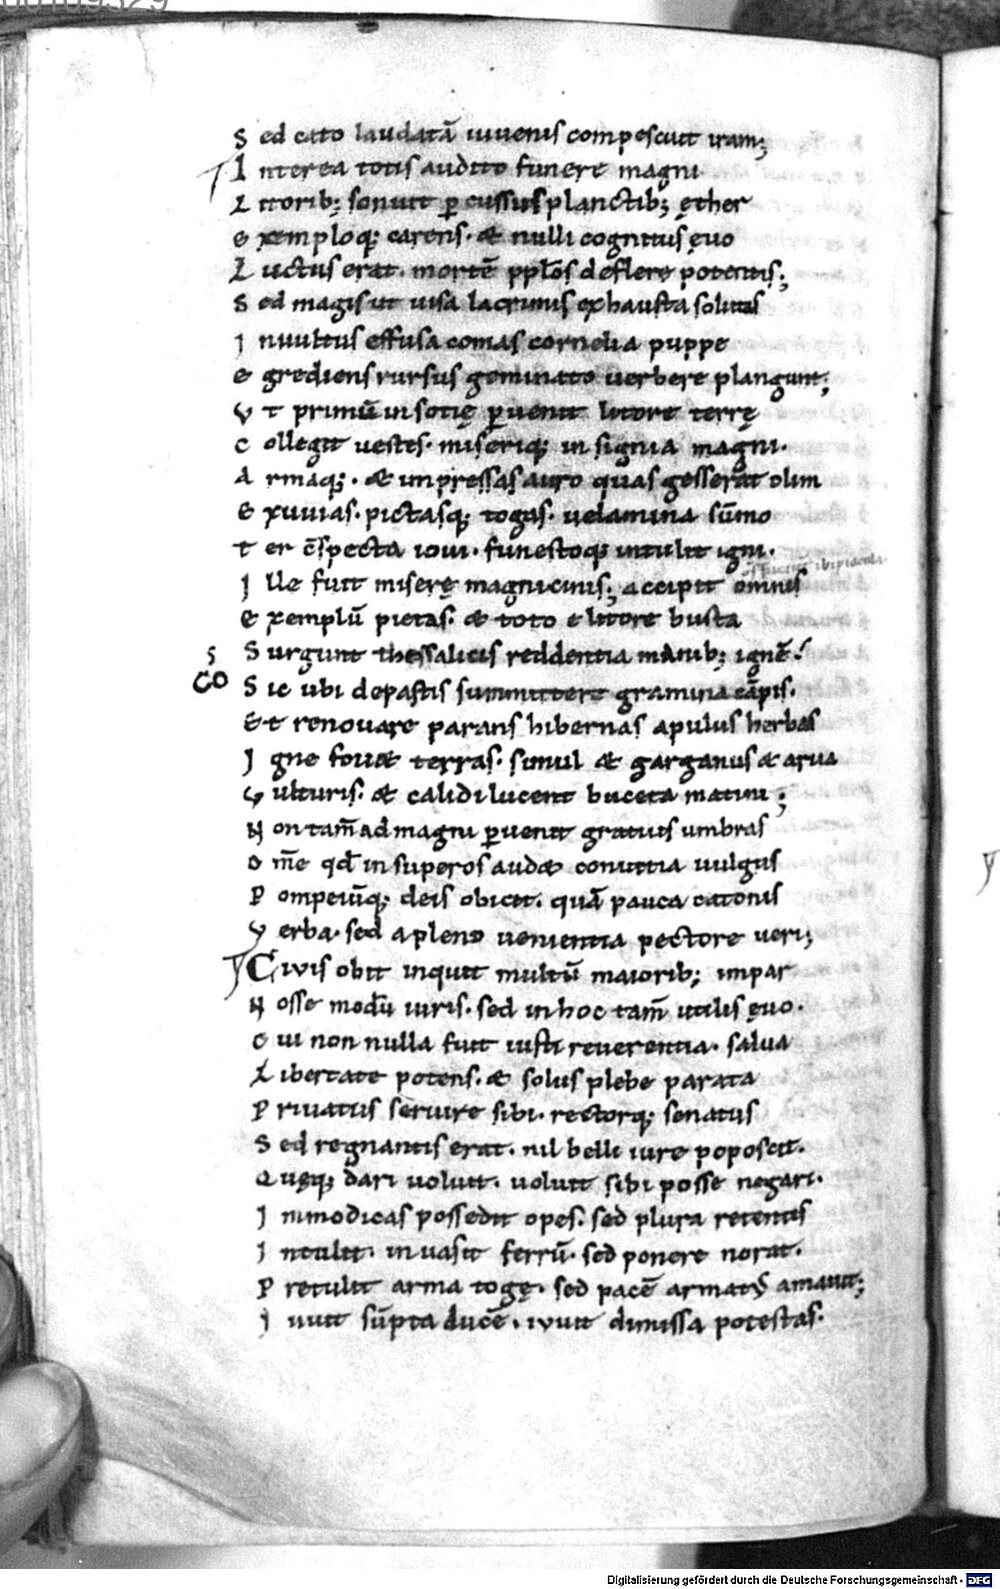 Sed cato laudatā iuvenis compescuit iram;
Interea totis audito funere magni
Litorib; sonuit p̄cussus planctib; ęther
Exemploq; carens. & nulli cognitus ęvo
Luctus erat. mortē ppl̄os deflere potentis;
Sed magis ut visa lacrimis exhausta solutas
Invultus effusa comas cornelia puppe
Egrediens rursus geminato verbere plangunt;
Vt primū insotię p̄venit litore terrę
Collegit vestes. miseriq; insignia magni.
Armaq;. & impressas auro quas gesserat olim
Exuvias. pictasq; togas. velamina sūmo
Ter c̄specta iovi. funestoq; intulit igni.
Ille fuit miserę magnicinis; accipit omnis
Exemplū pietas. & toto e litore busta
Surgunt thessalicis reddentia manib; ignē.
Sic ubi depastis summittere gramina cāpis.
Et renovare parans hibernas apulus herbas
Igne fov& terras. simul & garganus & arva
Vulturis. & calidi lucent buceta matini;
Non tam̄ ad magni p̄venit gratius umbras
Om̄e qd̄ in superos aud& convitia vulgus
Pompeiūq; deis obicit. quā pauca catonis
Verba. sed apleno venientia pectore veri;
Civis obit inquit multū maiorib; impar
Nosse modū iuris. sed inhoc tam̄ utilis ęvo.
Cui non nulla fuit iusti reverentia. salva
Libertate potens. & solus plebe parata
Privatus servire sibi. rectorq; senatus
Sed regnantis erat. nil belli iure poposcit.
Quęq; dari voluit. voluit sibi posse negari.
Inmodicas possedit opes. sed plura retentis
Intulit. invasit ferrū. sed ponere norat.
Pretulit arma togę. sed pacē armatꝰ amavit;
Iuvit sūpta ducē. iuvit dimissa potestas.
Digitalisierung gefördert durch die Deutsche Forschungsgemeinschaft - DFG